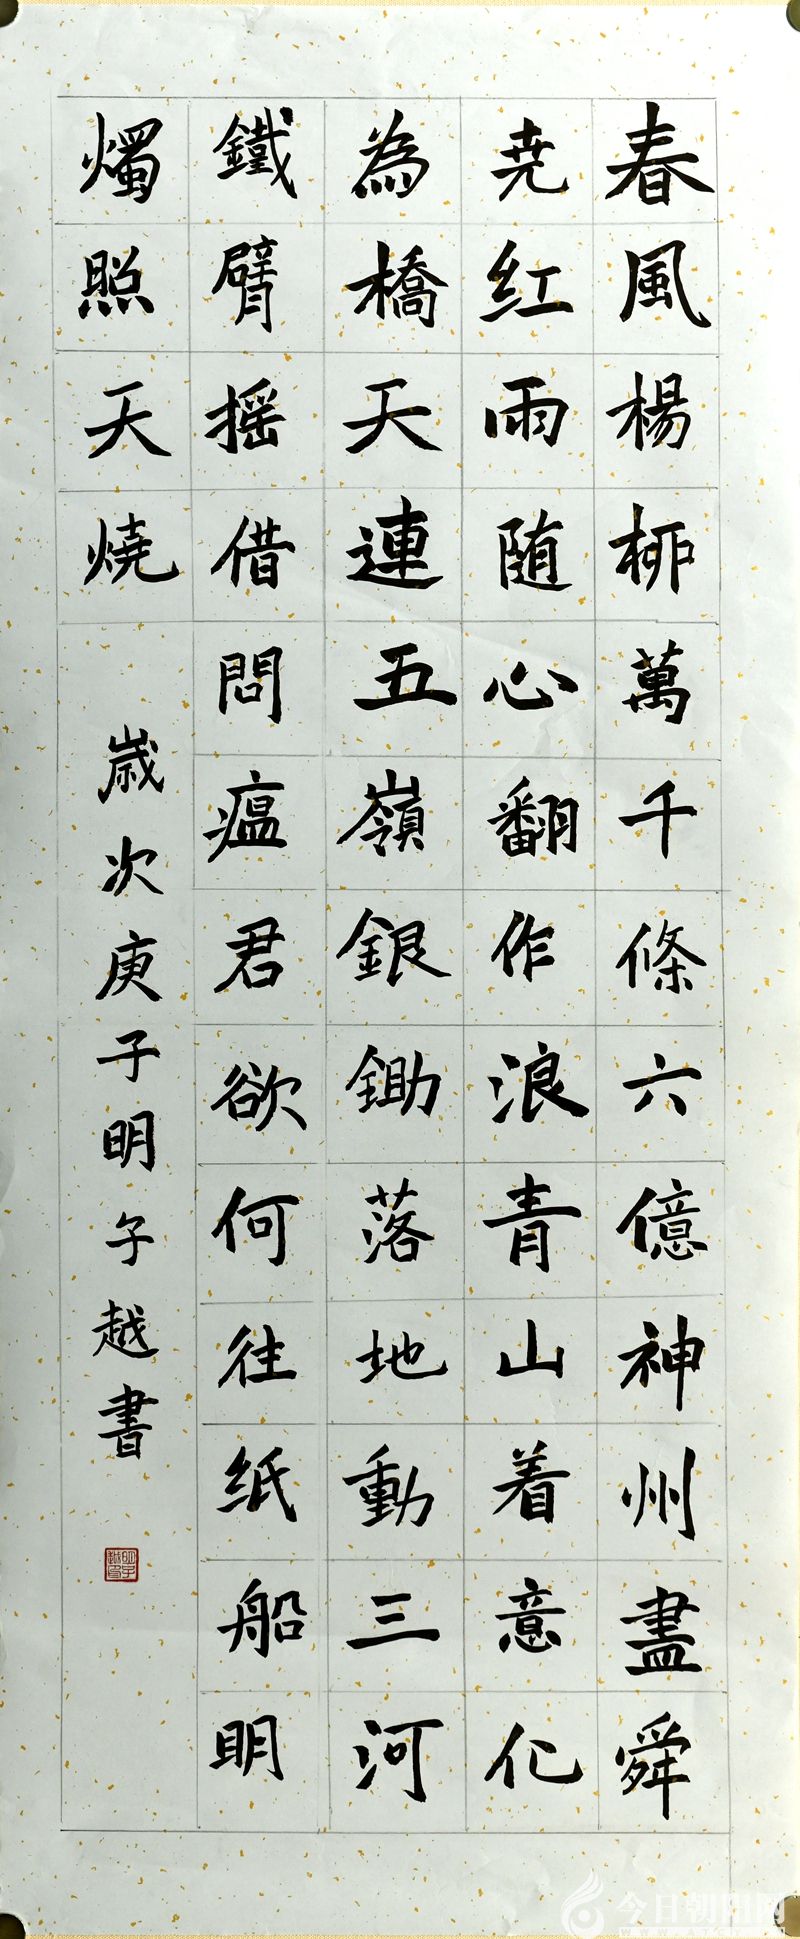 春風楊柳萬千條六億神州盡舜
尧红雨随心翻作浪青山着意化
為橋天連五嶺銀鋤落地動三河
鐵臂摇借問瘟君欲何往纸船明
燭照天燒
歲次庚子明子越書
今日朝阳网